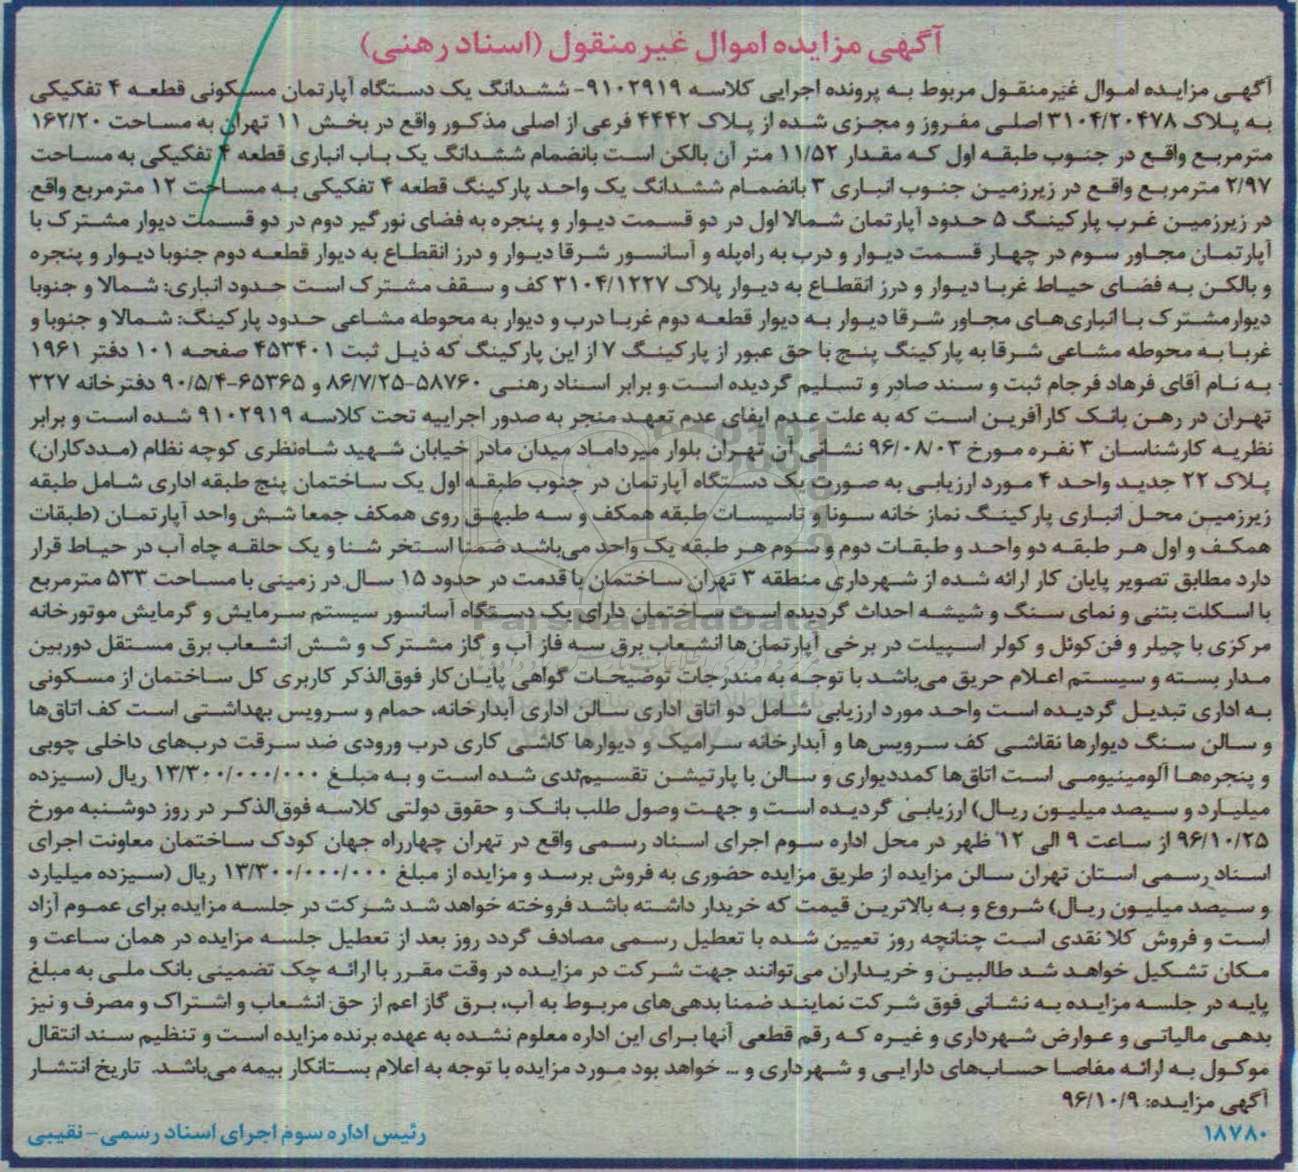 آگهی مزایده اموال غیرمنقول (اسناد رهنی)
آگهی مزایده اموال غیرمنقول مربوط به پرونده اجرایی کلاسه ۹۱۰۲۹۱۹- ششدانگ یک دستگاه آپارتمان مسکونی قطعه ۴ تفکیکی
به پلاک ۳۱۰۴/۲۰۴۷۸ اصلی مفروز و مجزی شده از پلاک ۴۴۴۲ فرعی از اصلی مذکور واقع در بخش ۱۱ تهران به مساحت ۱۶۲/۲۰
مترمربع واقع در جنوب طبقه اول که مقدار ۱۱/۵۲ متر آن بالکن است بانضمام ششدانگ یک باب انباری قطعه ۴ تفکیکی به مساحت
۲/۹۷ مترمربع واقع در زیرزمین جنوب انباری ۳ بانضمام ششدانگ یک واحد پارکینگ قطعه ۴ تفکیکی به مساحت ۱۲ مترمربع واقع
در زیرزمین غرب پارکینگ ۵ حدود آپارتمان شمالا اول در دو قسمت دیوار و پنجره به فضای نورگیر دوم در دو قسمت دیوار مشترک با
آپارتمان مجاور سوم در چهار قسمت دیوار و درب به راه‌پله و آسانسور شرقا دیوار و درز انقطاع به دیوار قطعه دوم جنوبا دیوار و پنجره
و بالکن به فضای حیاط غربا دیوار و درز انقطاع به دیوار پلاک ۳۱۰۴/۱۲۲۷ کف و سقف مشترک است حدود انباری: شمالا و جنوبا
دیوار مشترک با انباری‌های مجاور شرقا دیوار به دیوار قطعه دوم غربا درب و دیوار به محوطه مشاعی حدود پارکینگ: شمالا و جنوبا و
غربا به محوطه مشاعی شرقا به پارکینگ پنج با حق عبور از پارکینگ ۷ از این پارکینگ که ذیل ثبت ۴۵۳۴۰۱ صفحه ۱۰۱ دفتر ۱۹۶۱
به نام آقای فرهاد فرجام ثبت و سند صادر و تسلیم گردیده است و برابر اسناد رهنی ۵۸۷۶۰-۸۶/۷/۲۵ و ۶۵۳۶۵-۹۰/۵/۴ دفترخانه ۳۲۷
تهران در رهن بانک کارآفرین است که به علت عدم ایفای عدم تعهد منجر به صدور اجراییه تحت کلاسه ۹۱۰۲۹۱۹ شده است و برابر
نظریه کارشناسان ۳ نفره مورخ ۹۶/۰۸/۰۳ نشانی آن تهران بلوار میرداماد میدان مادر خیابان شهید شاه‌نظری کوچه نظام (مددکاران)
پلاک ۲۲ جدید واحد ۴ مورد ارزیابی به صورت یک دستگاه آپارتمان در جنوب طبقه اول یک ساختمان پنج طبقه اداری شامل طبقه
زیرزمین محل انباری پارکینگ نماز خانه سونا و تاسیسات طبقه همکف و سه طبهق روی همکف جمعا شش واحد آپارتمان (طبقات
همکف و اول هر طبقه دو واحد و طبقات دوم و سوم هر طبقه یک واحد می‌باشد ضمنا استخر شنا و یک حلقه چاه آب در حیاط قرار
دارد مطابق تصویر پایان کار ارائه شده از شهرداری منطقه ۳ تهران ساختمان با قدمت در حدود ۱۵ سال در زمینی با مساحت ۵۳۳ مترمربع
با اسکلت بتنی و نمای سنگ و شیشه احداث گردیده است ساختمان دارای یک دستگاه آسانسور سیستم سرمایش و گرمایش موتورخانه
مرکزی با چیلر و فن‌کوئل و کولر اسپیلت در برخی آپارتمان‌ها انشعاب برق سه فاز آب و گاز مشترک و شش انشعاب برق مستقل دوربین
مدار بسته و سیستم اعلام حریق می‌باشد با توجه به مندرجات توضیحات گواهی پایان‌کار فوق‌الذکر کاربری کل ساختمان از مسکونی
به اداری تبدیل گردیده است واحد مورد ارزیابی شامل دو اتاق اداری سالن اداری آبدارخانه، حمام و سرویس بهداشتی است کف اتاق‌ها
و سالن سنگ دیوارها نقاشی کف سرویس‌ها و آبدارخانه سرامیک و دیوارها کاشی کاری درب ورودی ضد سرقت درب‌های داخلی چوبی
و پنجره‌ها آلومینیومی است اتاق‌ها کمددیواری و سالن با پارتیشن تقسیم‌ندی شده است و به مبلغ ۱۳/۳۰۰/۰۰۰/۰۰۰ ریال (سیزده
میلیارد و سیصد میلیون ریال) ارزیابی گردیده است و جهت وصول طلب بانک و حقوق دولتی کلاسه فوق‌الذکر در روز دوشنبه مورخ
۹۶/۱۰/۲۵ از ساعت ۹ الی ۱۲ ظهر در محل اداره سوم اجرای اسناد رسمی واقع در تهران چهارراه جهان کودک ساختمان معاونت اجرای
اسناد رسمی استان تهران سالن مزایده از طریق مزایده حضوری به فروش برسد و مزایده از مبلغ ۱۳/۳۰۰/۰۰۰/۰۰۰ ریال (سیزده میلیارد
و سیصد میلیون ریال) شروع و به بالاترین قیمت که خریدار داشته باشد فروخته خواهد شد شرکت در جلسه مزایده برای عموم آزاد
است و فروش کلا نقدی است چنانچه روز تعیین شده با تعطیل رسمی مصادف گردد روز بعد از تعطیل جلسه مزایده در همان ساعت و
مکان تشکیل خواهد شد طالبین و خریداران می‌توانند جهت شرکت در مزایده در وقت مقرر با ارائه چک تضمینی بانک ملی به مبلغ
پایه در جلسه مزایده به نشانی فوق شرکت نمایند ضمنا بدهی‌های مربوط به آب، برق گاز اعم از حق انشعاب و اشتراک و مصرف و نیز
بدهی مالیاتی و عوارض شهرداری و غیره که رقم قطعی آنها برای این اداره معلوم نشده به عهده برنده مزایده است و تنظیم سند انتقال
موکول به ارائه مفاصا حساب‌های دارایی و شهرداری و ... خواهد بود مورد مزایده با توجه به اعلام بستانکار بیمه می‌باشد. تاریخ انتشار
آگهی مزایده: ۹۶/۱۰/۹
۱۸۷۸۰
رئیس اداره سوم اجرای اسناد رسمی- نقیبی
ParsNamadData